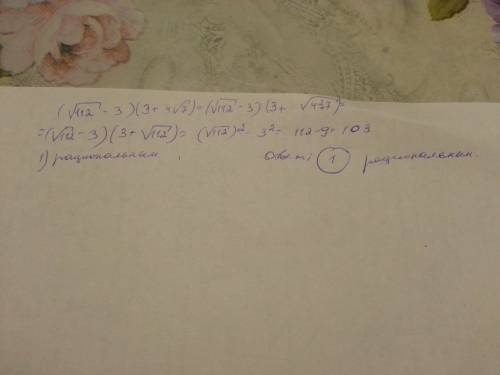 (√112 - 3)(3 + 4√7) = (√112 - 3)(3 + √4²·7) =
= (√112 - 3)(3 + √112) = (√112)² - 3² = 112 - 9 = 103
1) рациональным Ответ: 1 рациональным.